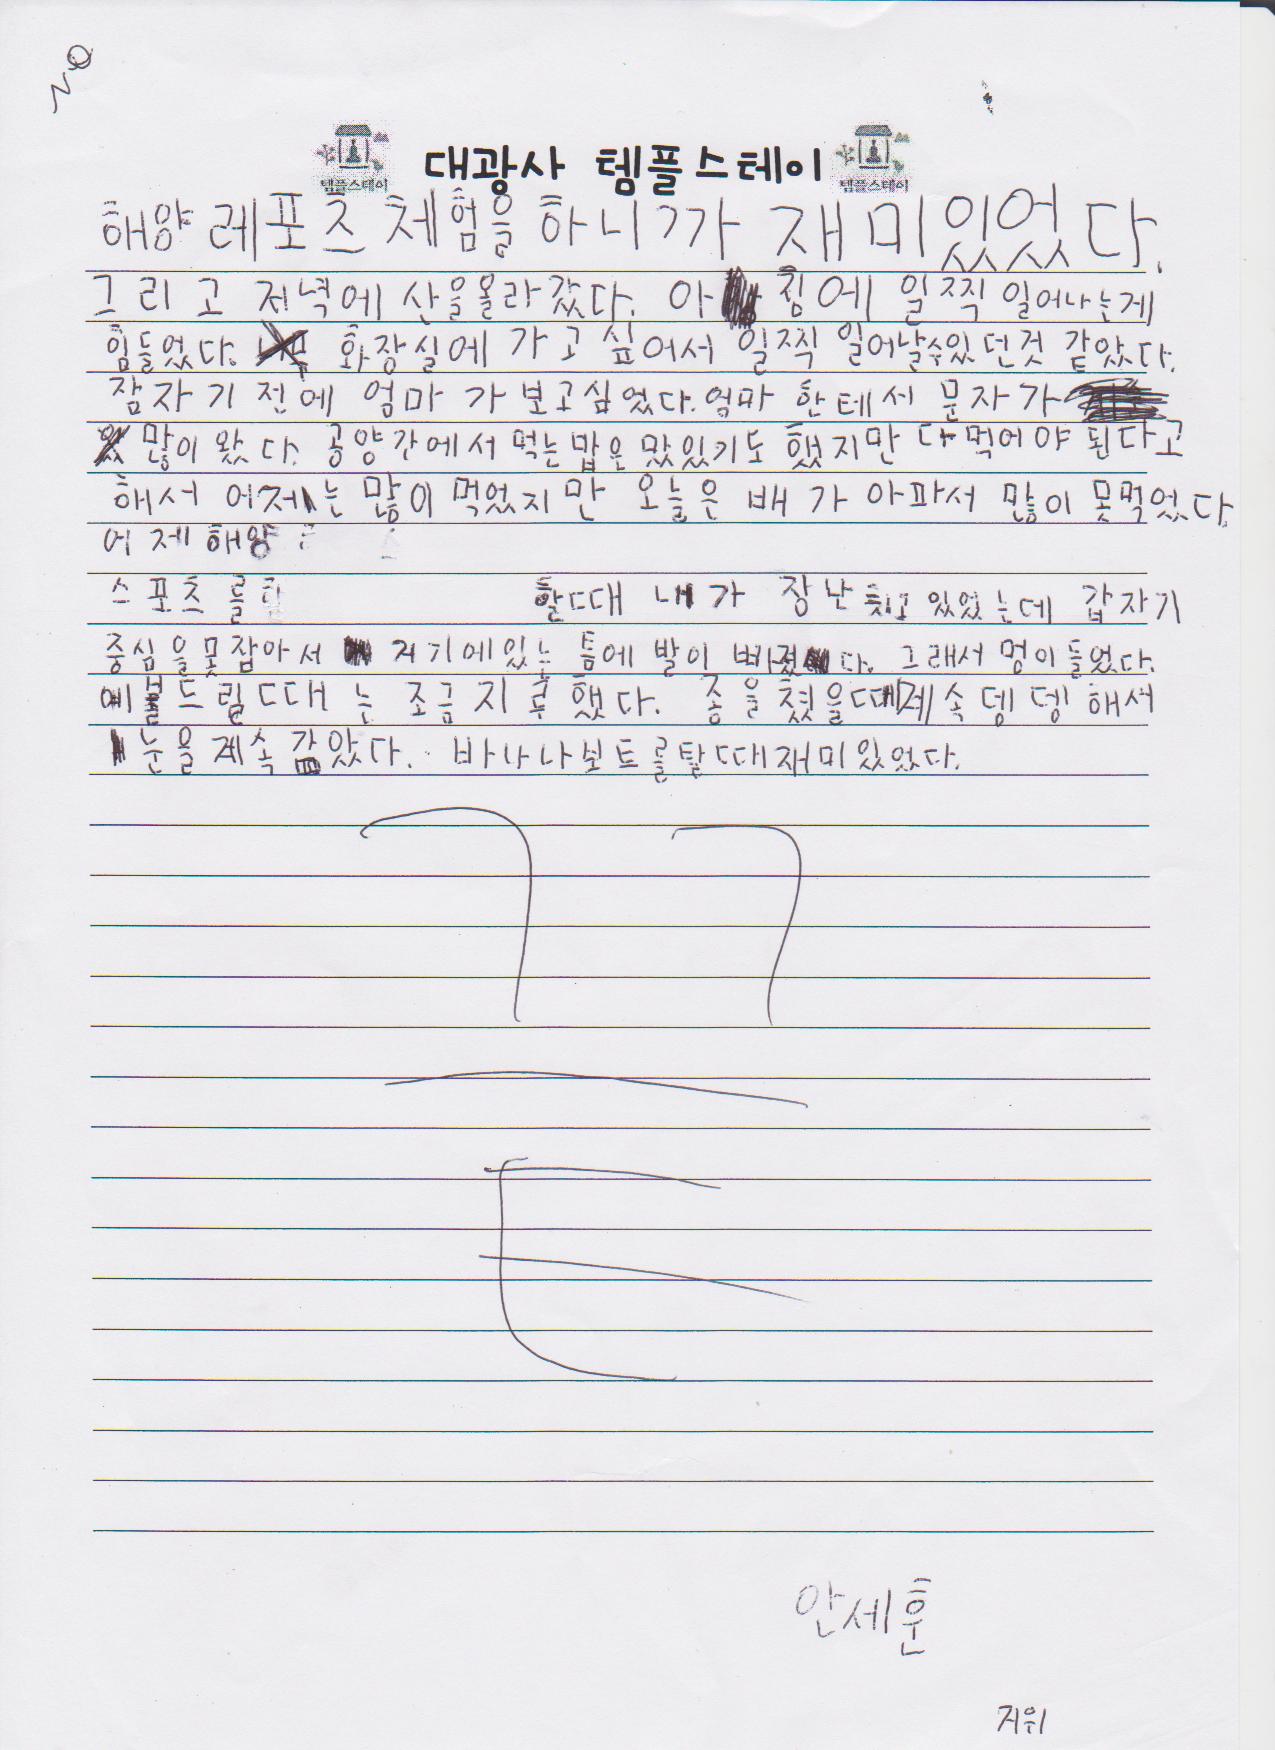 대광사 템플스테이
템플스테이
템플스테이
해양 레포츠 체험을 하니까 재미있었다.
그리고 저녁에 산을올라갔다. 아침에 일찍 일어나는게
힘들었다. 화장실에 가고 싶어서 일찍 일어날수있던것 같았다.
잠자기 전에 엄마가 보고싶었다. 엄마 한테서 문자가
많이 왔다. 공양간에서 먹는밥은 맜있기도 했지만 다먹어야 된다고
해서 어제는 많이먹었지만 오늘은 배가 아파서 많이 못먹었다.
어제해양
스포츠를 할때 내가 장난치고있었는데 갑자기
중심을못잡아서 저기에있는 틈에 발이 빠졌다. 그래서 멍이들었다.
예불드릴때는 조금지루했다. 종을쳤을때계속뎅뎅해서
눈을계속감았다. 바나나보트를탈때재미있었다.
끝
안세훈